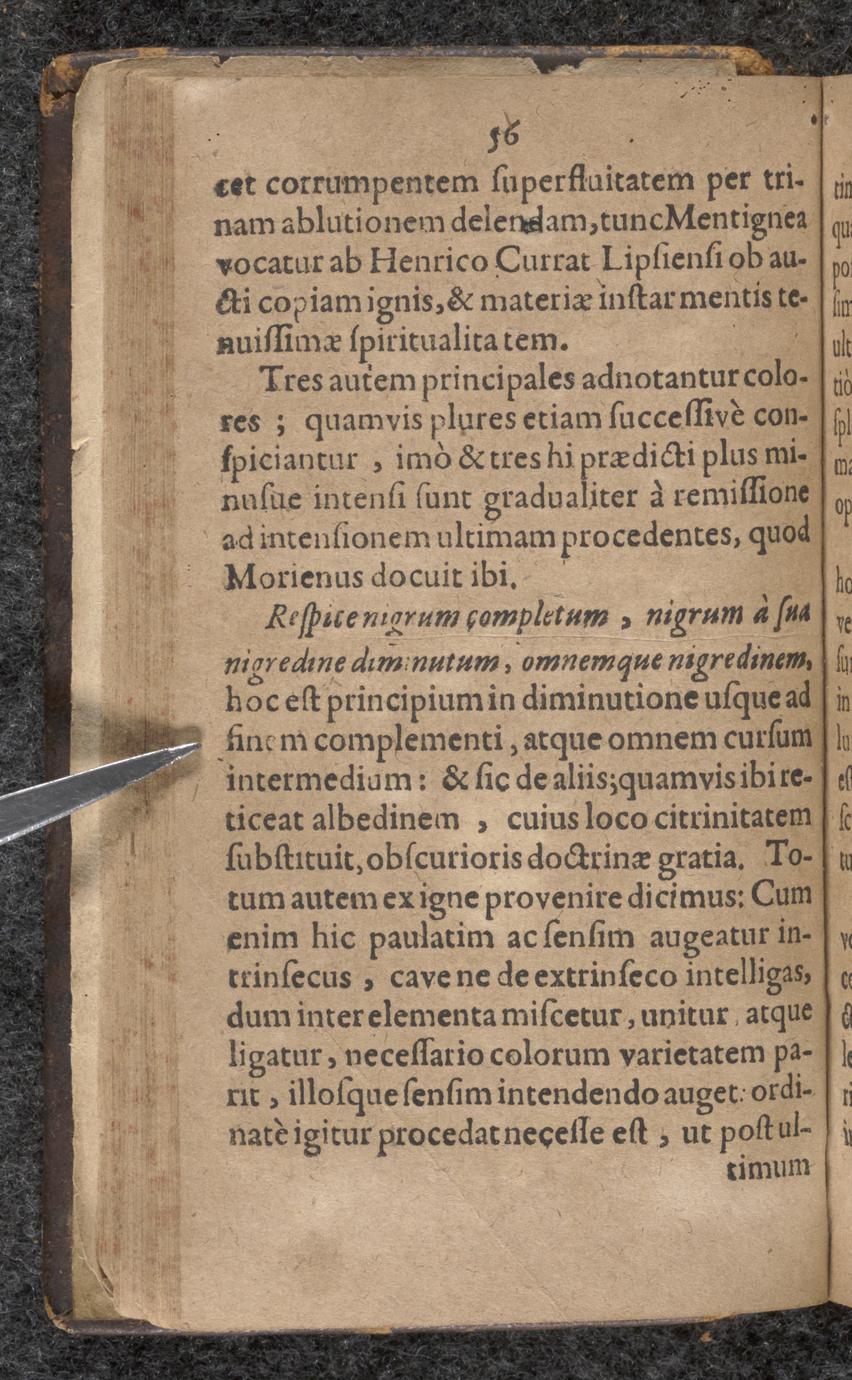 56
cet corrumpentem ſuperfluitatem per tri-
nam ablutionem delendam, tunc Mentignea
vocatur ab Henrico Currat Lipſienſi ob au-
cti copiam ignis, & materiæ inſtar mentis te-
nuiſſimæ ſpiritualitatem.
Tres autem principales adnotantur colo-
res ; quamvis plures etiam ſucceſſivè con-
ſpiciantur , imò & tres hi prædicti plus mi-
nuſue intenſi ſunt gradualiter à remiſſione
ad intenſionem ultimam procedentes, quod
Morienus docuit ibi.
Reſpice nigrum completum , nigrum à ſua
nigredine diminutum, omnemque nigredinem,
hoc eſt principium in diminutione uſque ad
finem complementi , atque omnem curſum
intermedium : & ſic de aliis; quamvis ibi re-
ticeat albedinem , cuius loco citrinitatem
ſubſtituit, obſcurioris doctrinæ gratia. To-
tum autem ex igne provenire dicimus: Cum
enim hic paulatim ac ſenſim augeatur in-
trinſecus , cave ne de extrinſeco intelligas,
dum inter elementa miſcetur, unitur, atque
ligatur, neceſſario colorum varietatem pa-
rit , illoſque ſenſim intendendo auget: ordi-
natè igitur procedat neceſſe eſt , ut poſt ul-
timum